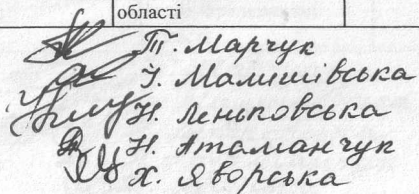 області
Т. Марчук
І. Малишівська
Н. Леньковська
Н. Атаманчук
Х. Яворська